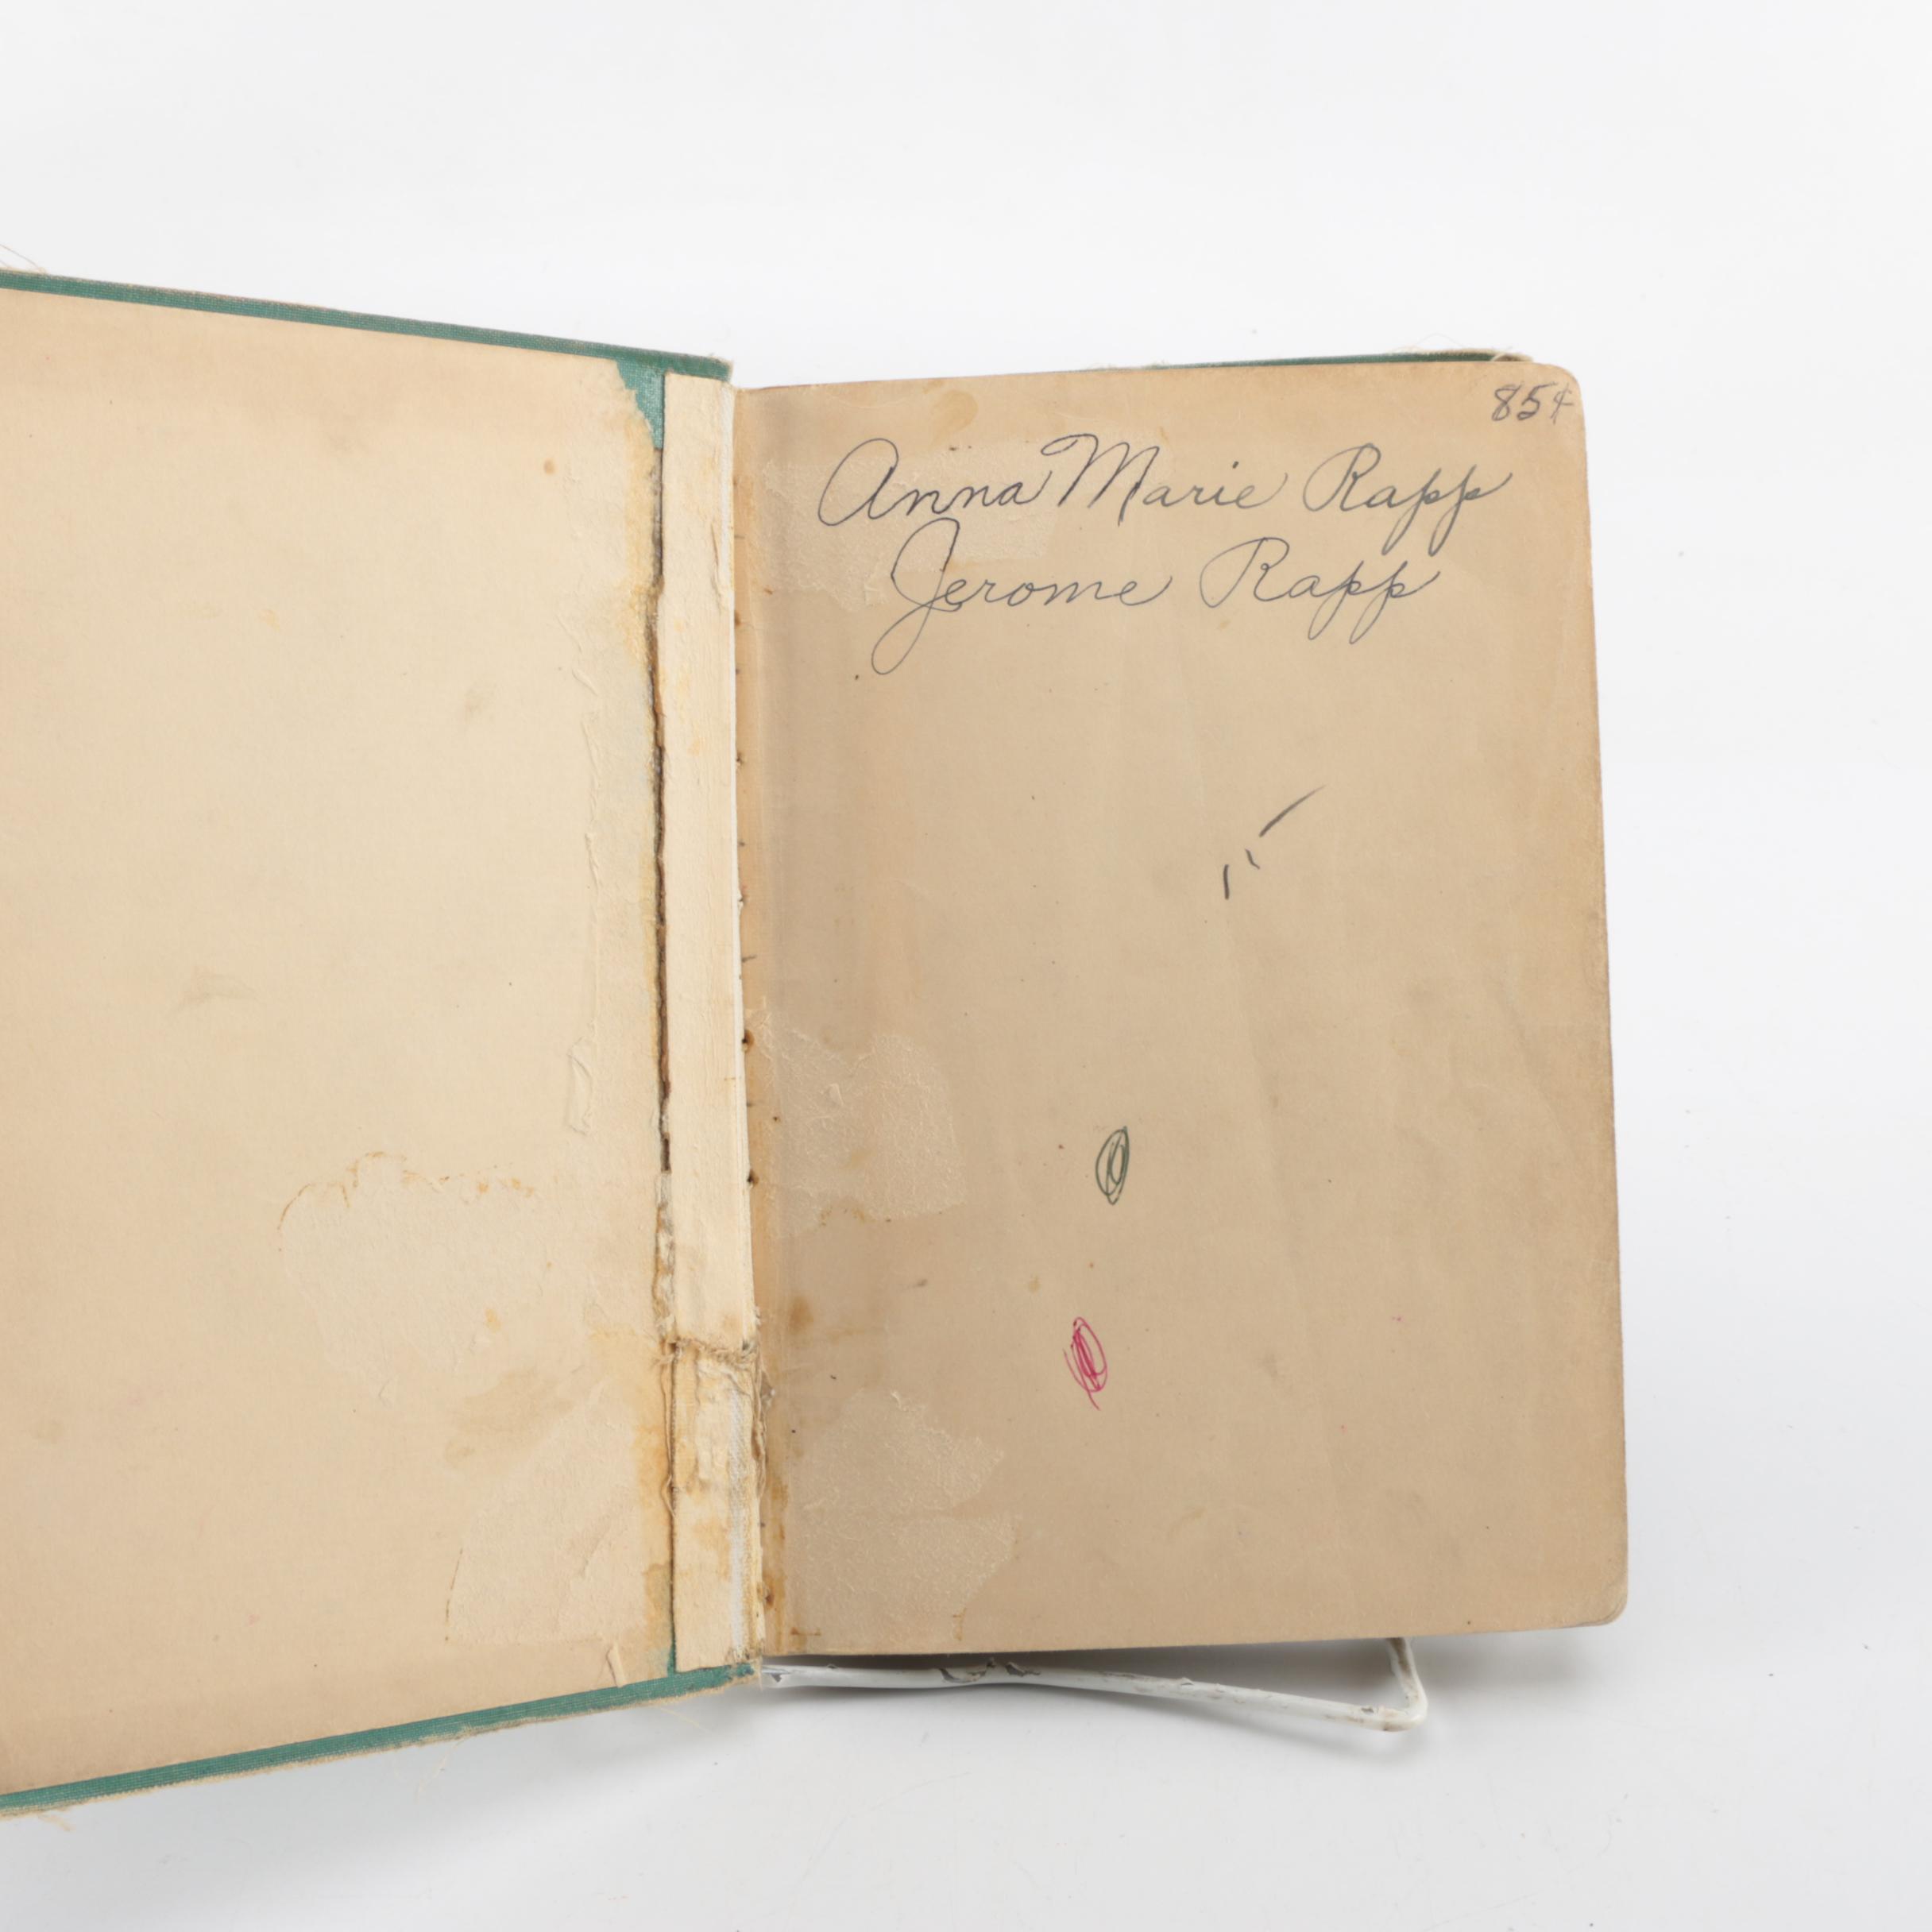 85¢
Anna Marie Rapp
Jerome Rapp